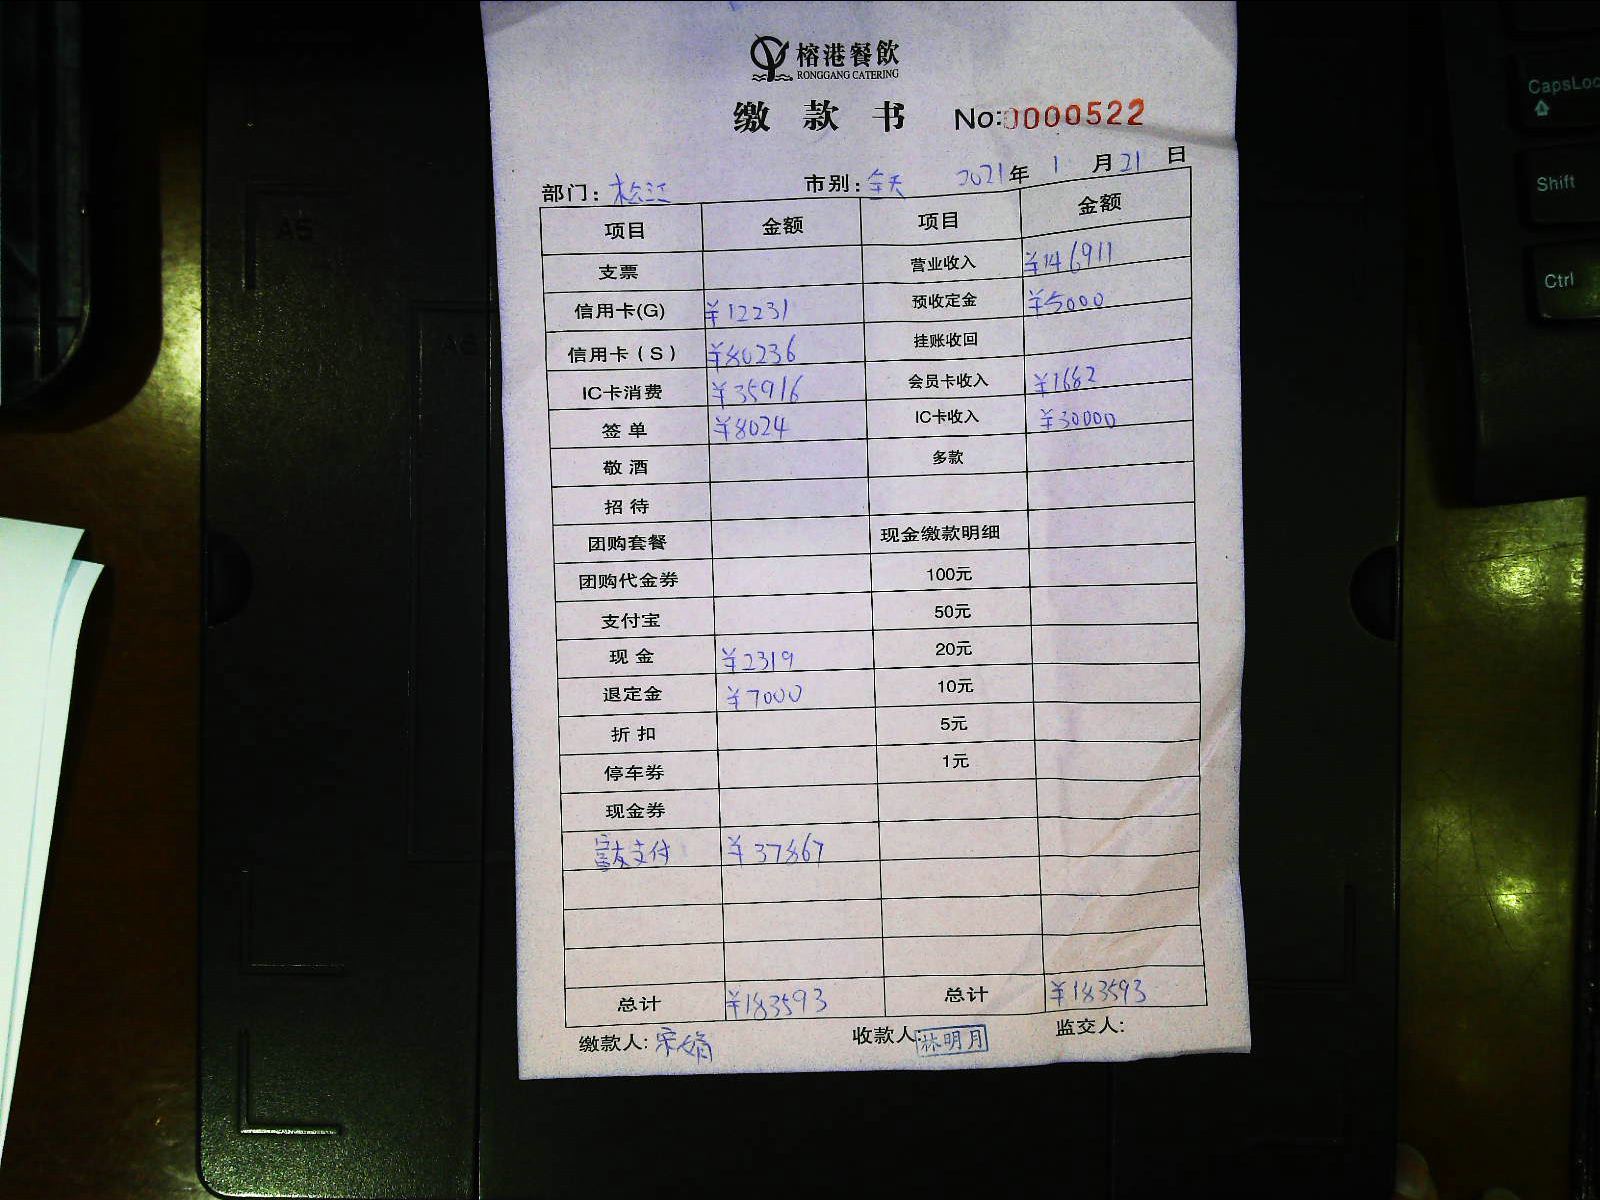 榕港餐飲
RONGGANG CATERING
缴款书 No:0000522
部门：松江 市别：全天 2021年1月21日
项目 金额 项目 金额
支票 营业收入 ¥146911
信用卡(G) ¥12231 预收定金 ¥5000
信用卡（S） ¥80236 挂账收回
IC卡消费 ¥35916 会员卡收入 ¥1682
签单 ¥8024 IC卡收入 ¥30000
敬酒 多款
招待
团购套餐 现金缴款明细
团购代金券 100元
支付宝 50元
现金 ¥2319 20元
退定金 ¥7000 10元
折扣 5元
停车券 1元
现金券
富友支付 ¥37867
总计 ¥183593 总计 ¥183593
缴款人：宋娟 收款人：林明月 监交人：
CapsLoc
Shift
Ctrl
A5
A6